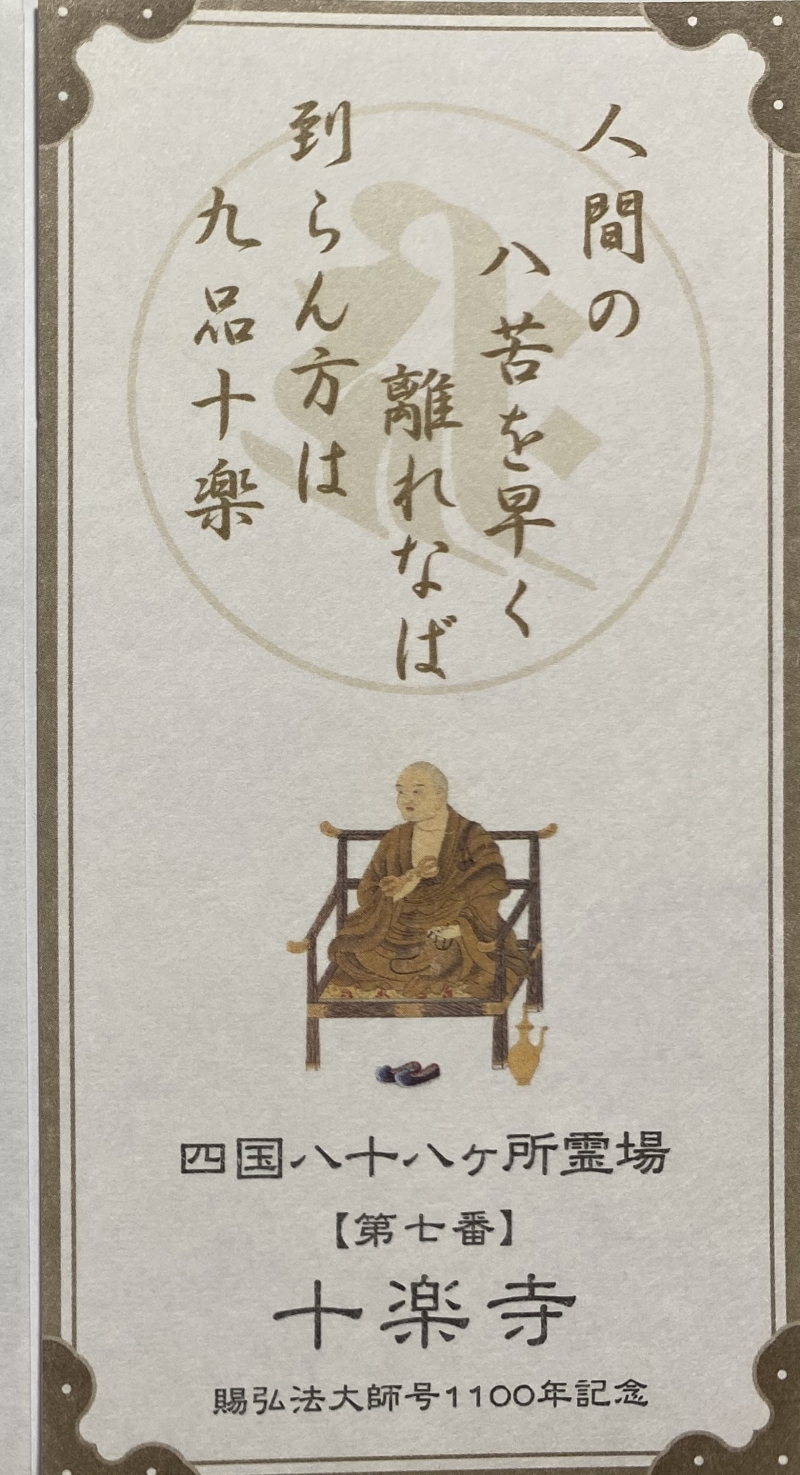 人間の
八苦を早く
離れなば
到らん方は
九品十楽
四国八十八ヶ所霊場
【第七番】
十楽寺
賜弘法大師号1100年記念